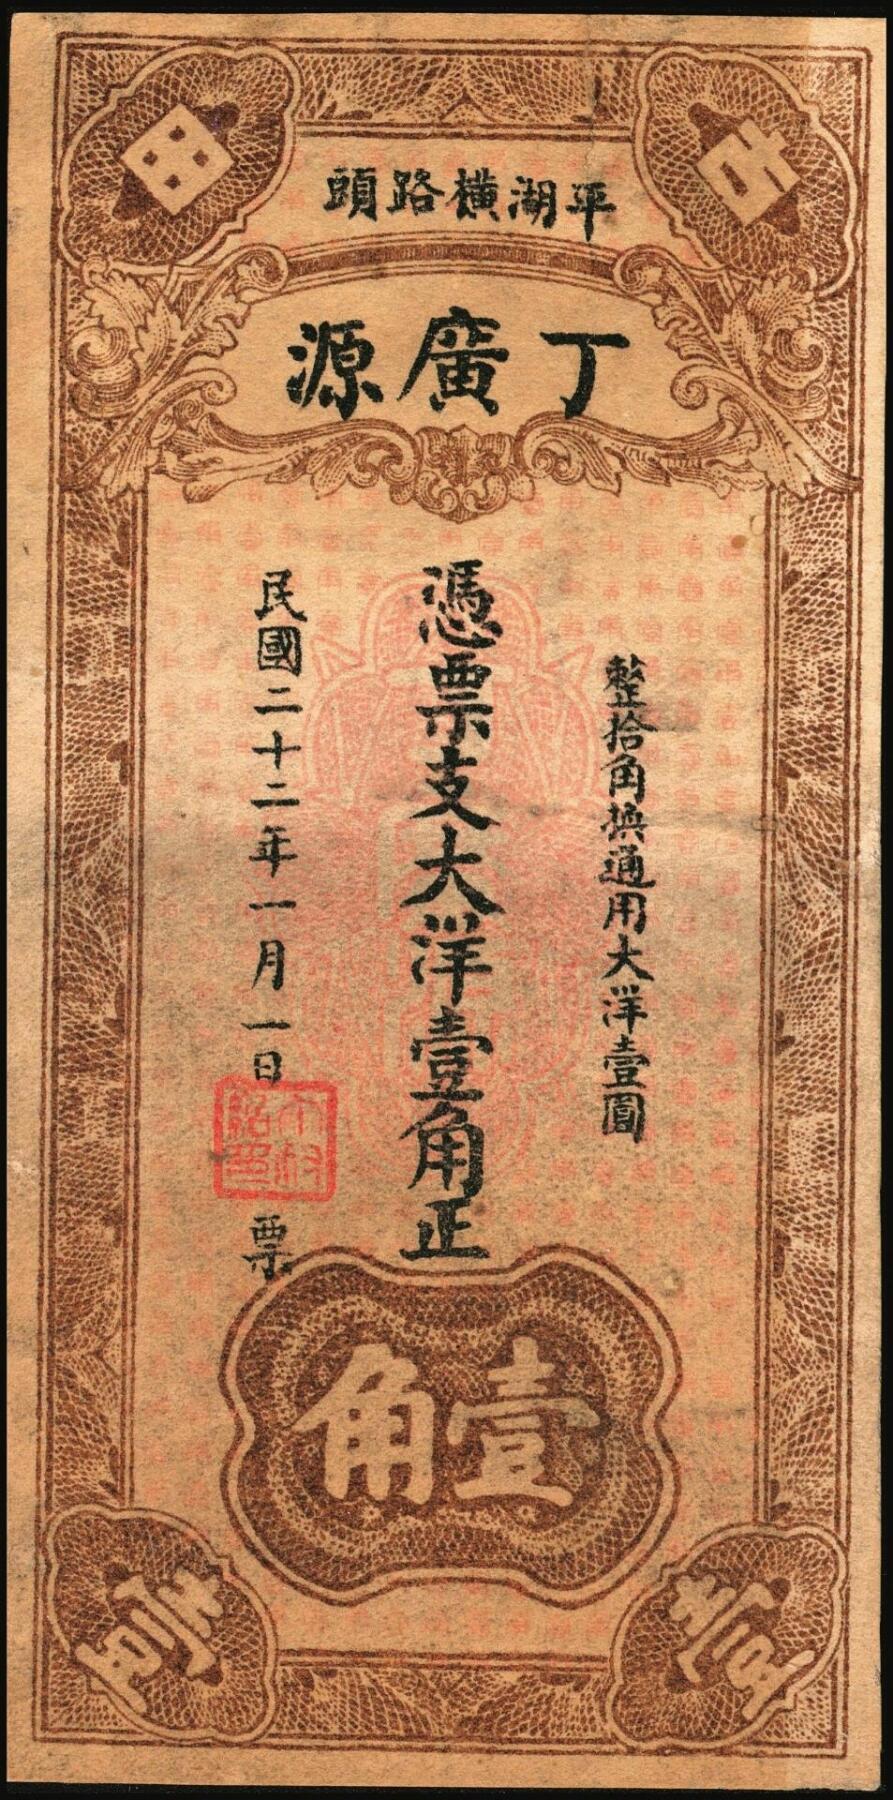 平湖橫路頭
丁廣源
整拾角換通用大洋壹圓
憑票支大洋壹角正
民國二十二年一月一日
票
壹角